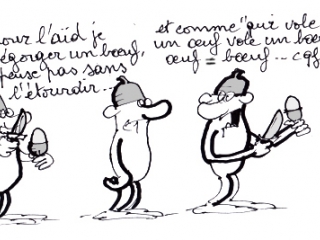 our l'aïd je
égorger un bœuf,
pas sans
l'étourdir...
et comme "qui vole
un œuf vole un bœ
œuf = bœuf... cqf